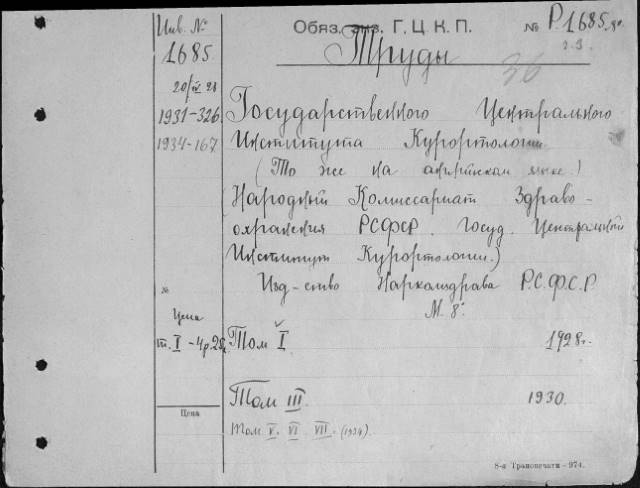 Инв. №
1685
20/IV 28
1931-326
1934-167
Обяз. экз. Г. Ц. К. П.
№ Р.1685
Труды
36
Государственного Центрального
Института Курортологии
(То же на английском языке)
(Народный Комиссариат Здраво-
охранения РСФСР. Госуд. Центральный
Институт Курортологии.)
Изд-ство Наркомздрава Р.С.Ф.С.Р.
М. 8°.
№
Цена
т. I - 4р.25к.
Том I. 1928г.
Том III. 1930.
Цена
Том V. VI VII - (1934).
8-я Транспечати - 974.